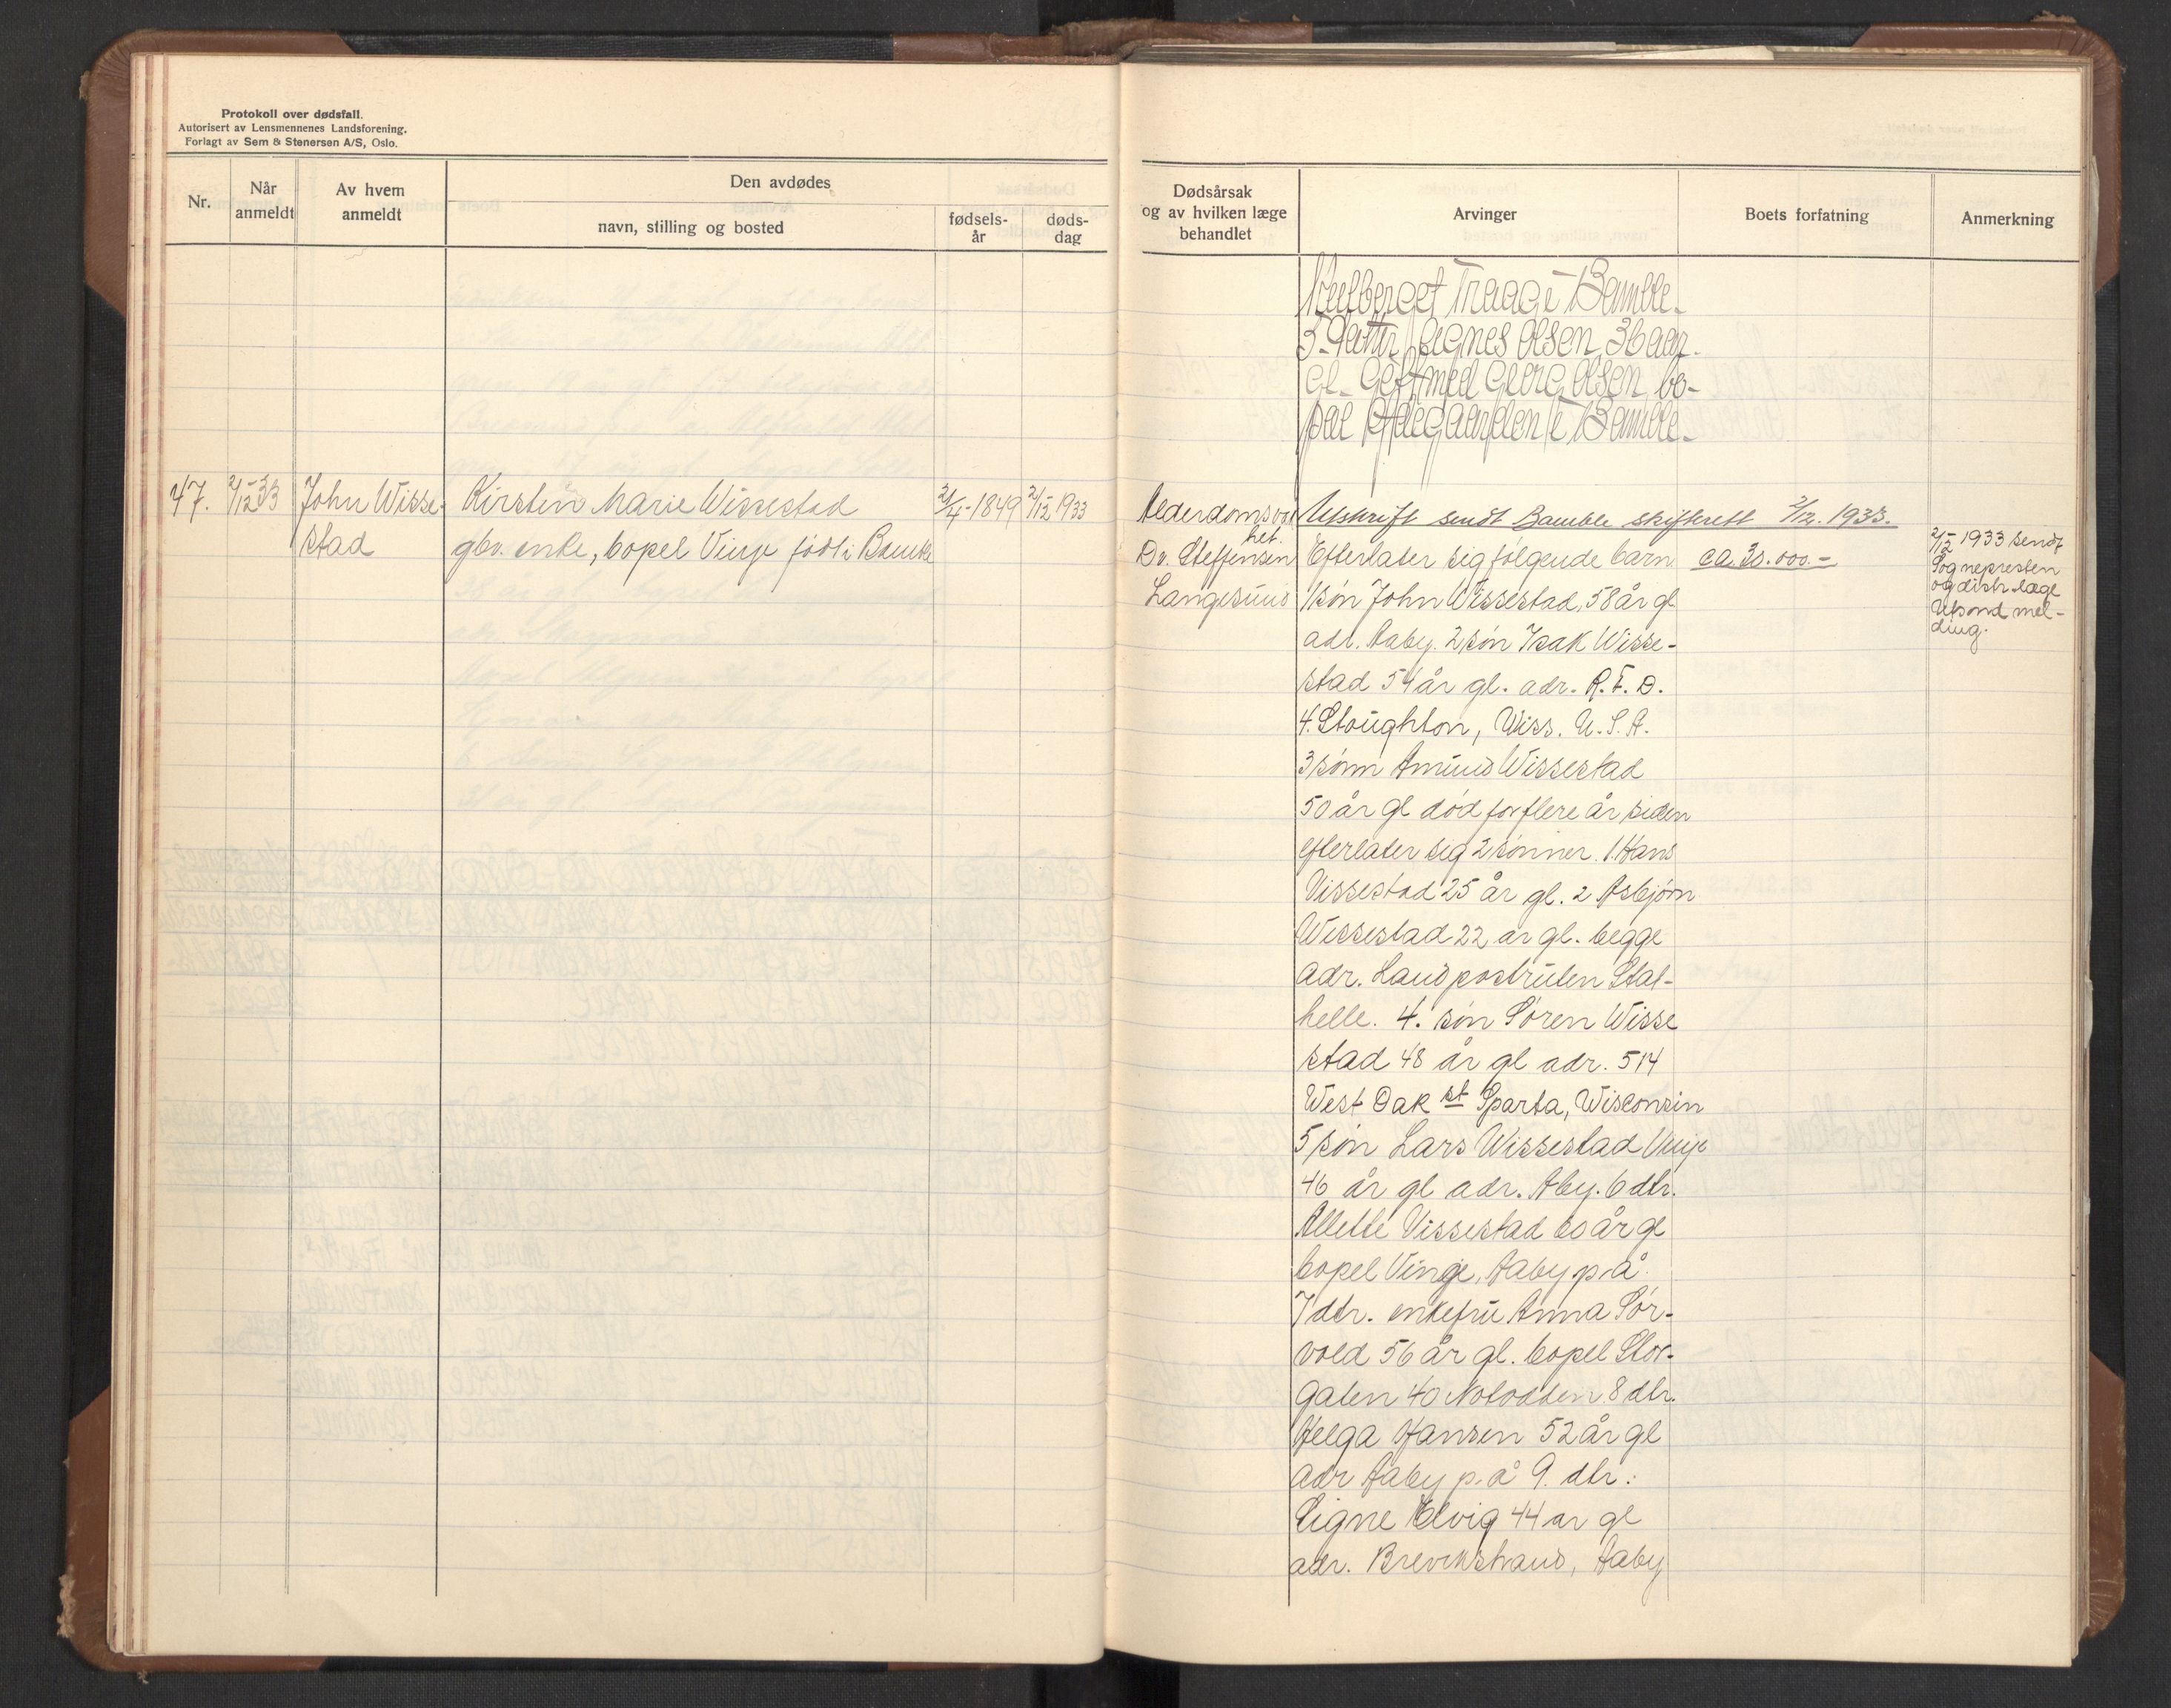 Protokoll over dødsfall.
Autorisert av Lensmennenes Landsforening.
Forlagt av Sem & Stenersen A/S, Oslo.
Nr.
Når
anmeldt
Av hvem
anmeldt
Den avdødes
navn, stilling og bosted
fødsels-
år
døds-
dag
47.
2/12-33
John Wisse-
stad
Kirsten Marie Wissestad
gbr. enke, bopel Vinje født i Bamble
21/4-1849
2/12 1933
Dødsårsak
og av hvilken læge
behandlet
Arvinger
Boets forfatning
Anmerkning
Traage i Bamble.
5. Datter Agnes Olsen 36 aar
gl. Gift med Georg Olsen bo-
pæl Ødegaarden i Bamble.
Alderdomsvak
het.
Dr. Steffensen
Langesund
Utskrift sendt Bamble skifterett 2/12. 1933.
Efterlater sig følgende barn
1/søn John Wissestad, 58 år gl
adr. Aaby. 2/søn Isak Wisse-
stad 54 år gl. adr. R.F.D.
4. Stoughton, Wiss. U.S.A.
3/sønn Amund Wissestad
50 år gl død for flere år siden
efterlater sig 2 sønner. 1. Hans
Vissestad 25 år gl. 2 Asbjørn
Wissestad 22 år gl. begge
adr. Landpostruten Stat-
helle. 4. søn Søren Wisse
stad 48 år gl adr. 514
West Oak st Sparta, Wisconsin
5/søn Lars Wissestad Vinje
46 år gl adr. Åby. 6 dtr.
Allette Vissestad 60 år gl
bopel Vinje, Aaby p.å.
7 dtr. enkefru Anna Sør-
vold 56 år gl. bopel Stor-
gaten 40 Notodden 8 dtr.
Helga Hansen 52 år gl
adr Aaby p.å 9. dtr:
Signe Elvig 44 år gl
adr. Brevikstrand, Aaby
ca. 30.000.-
2/12 1933 sendt
Sognepresten
og distr. læge
Utsond mel-
ding.